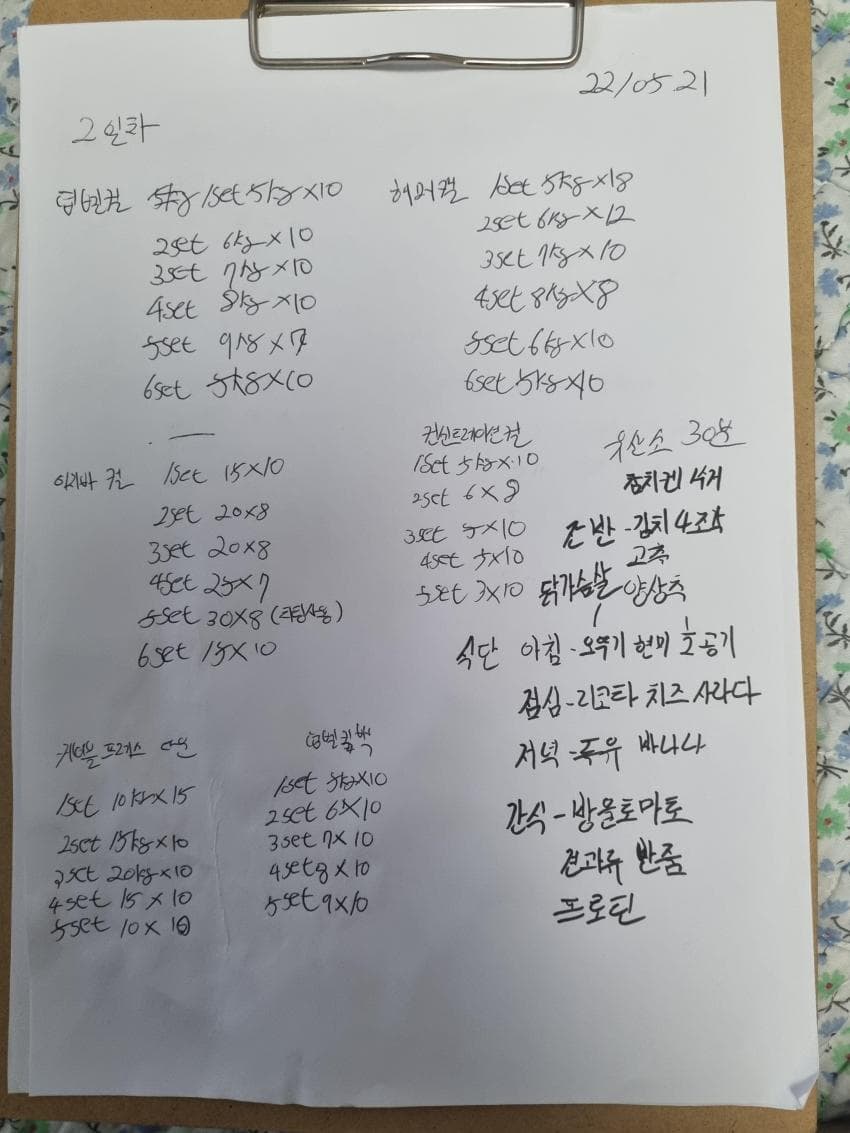 22/05.21
2일차
덤벨컬 5kg 1set 5kg×10
2set 6kg×10
3set 7kg×10
4set 8kg×10
5set 9kg×7
6set 5kg×10
허머컬 1set 5kg×18
2set 6kg×12
3set 7kg×10
4set 8kg×8
5set 6kg×10
6set 5kg×10
이지바 컬 1set 15×10
2set 20×8
3set 20×8
4set 25×7
5set 30×8
6set 15×10
컨신트레이션컬
1set 5kg×10
2set 6×8
3set 5×10
4set 5×10
5set 3×10
유산소 30분
참치캔 4개
반-김치4조각
고추
닭가슴살 양상추
식단 아침-오뚜기 현미 1/2공기
점심-리코타 치즈 사라다
저녁-두유 바나나
간식-방울토마토
견과류 반줌
프로틴
케이블 프레스 다운
1set 10kg×15
2set 15kg×10
3set 20kg×10
4set 15×10
5set 10×10
덤벨킥백
1set 5kg×10
2set 6×10
3set 7×10
4set 8×10
5set 9×10